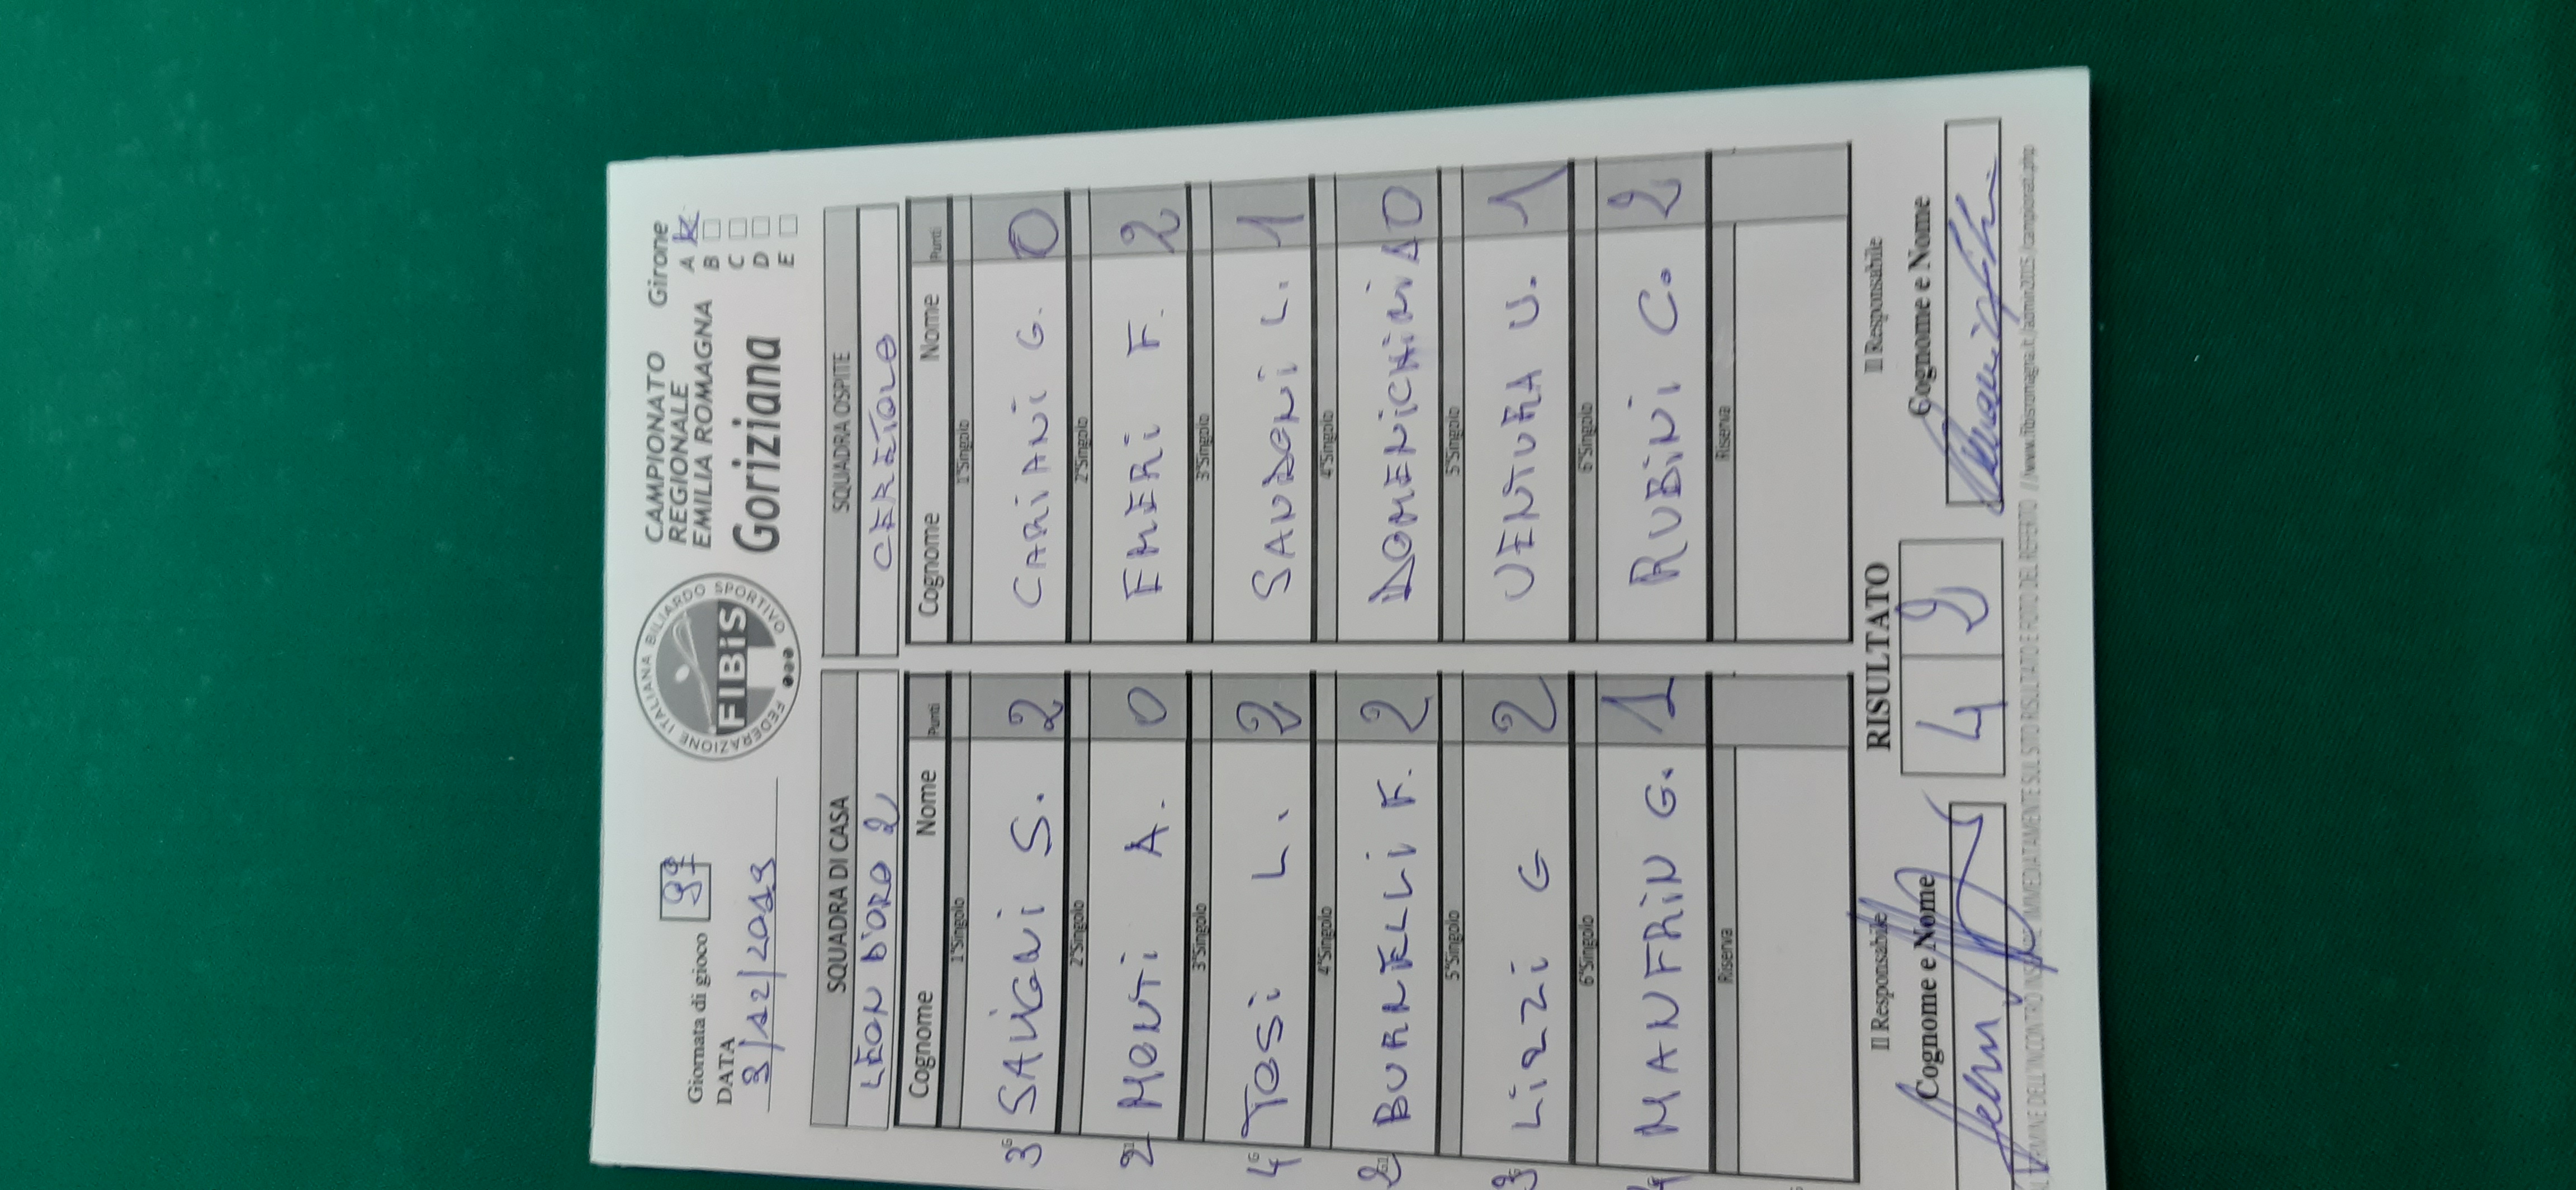 CAMPIONATO
REGIONALE
EMILIA ROMAGNA
Goriziana
Girone
A
B
C
D
E
FEDERAZIONE ITALIANA BILIARDO SPORTIVO
FIBiS
Giornata di gioco
DATA
SQUADRA DI CASA
LEON D'ORO 2
Cognome Nome Punti
1°Singolo
SAVIGNI S. 2
2°Singolo
MONTI A. 0
3°Singolo
TOSI L. 2
4°Singolo
BURNELLI F. 2
5°Singolo
LIZZI G 2
6°Singolo
MANFRIN G. 1
Riserva
SQUADRA OSPITE
CERETOLO
Cognome Nome Punti
1°Singolo
CARIANI G. 0
2°Singolo
FMERI F. 2
3°Singolo
SANDONI L. 1
4°Singolo
DOMENICHINI A 0
5°Singolo
VENTURA U. 1
6°Singolo
RUBINI C. 2
Riserva
Il Responsabile
Cognome e Nome
RISULTATO
4 2
Il Responsabile
Cognome e Nome
IMMEDIATAMENTE SUL SITO RISULTATO E FOTO DEL REFERTO